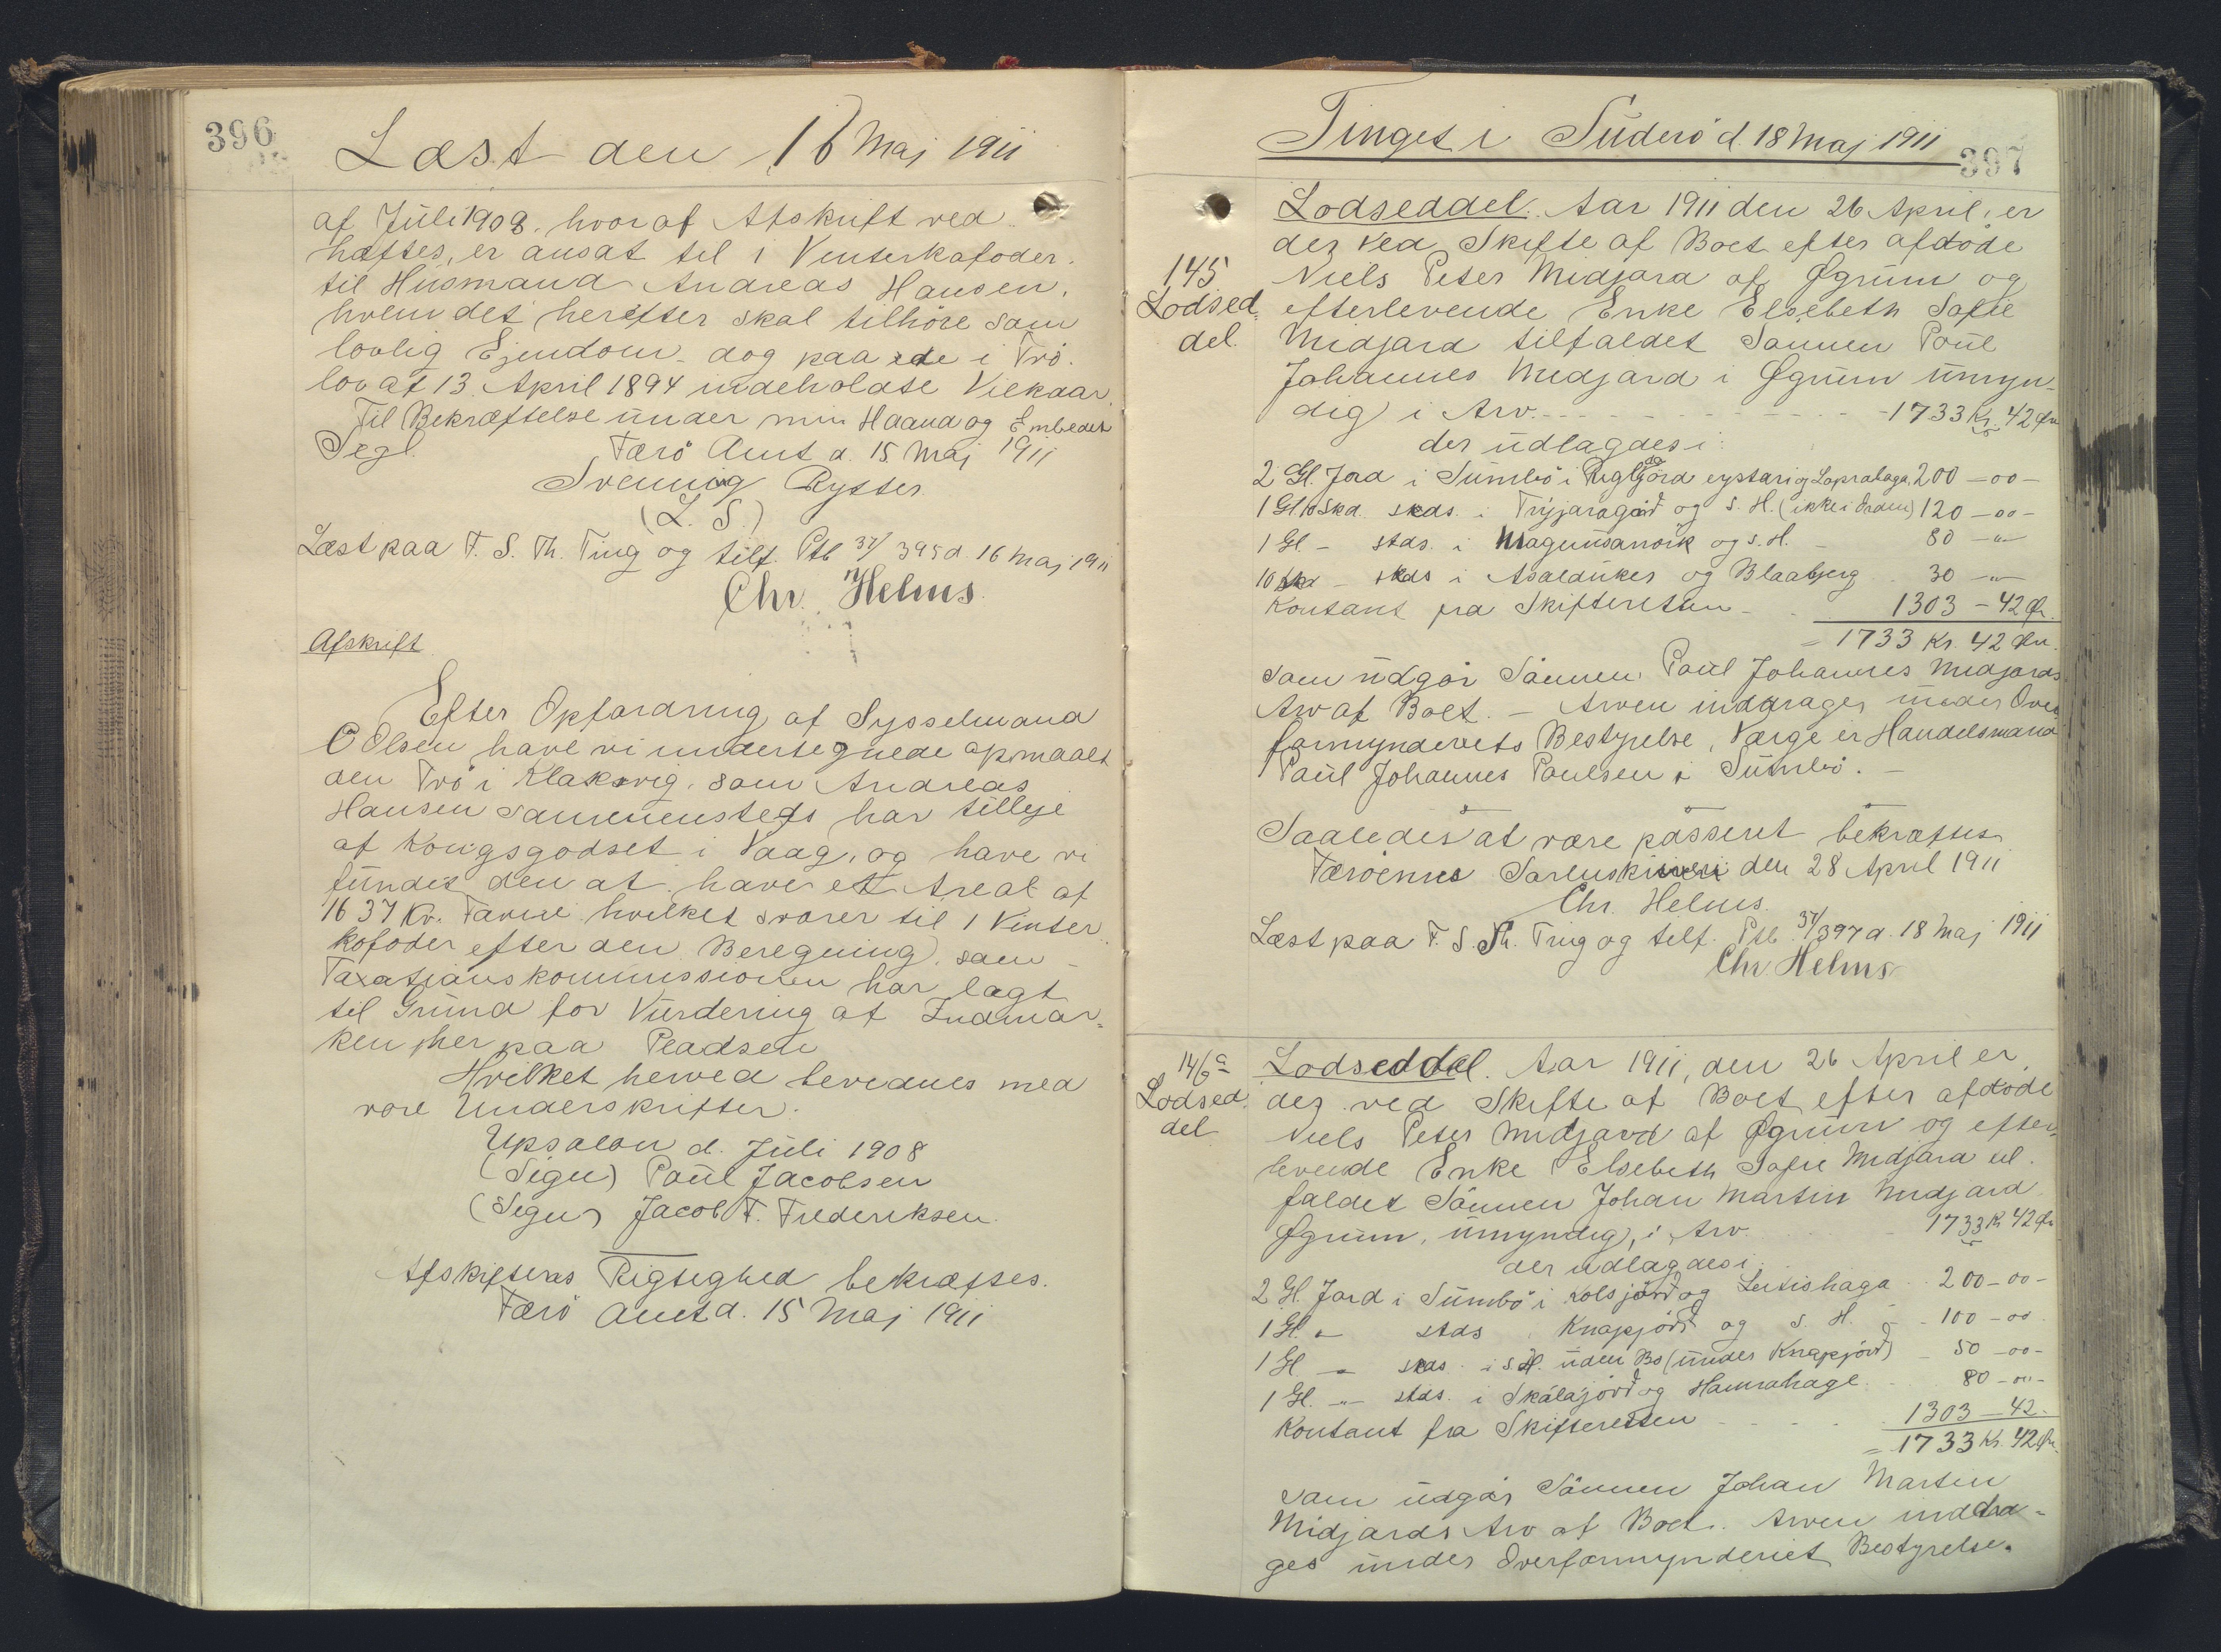 396
Læst den 16 Maj 1911
af Juli 1908, hvoraf Afskrift ved
hæftes, er ansat til 1 Vinterkofoder.
til Husmand Andreas Hansen,
hvem det herefter skal tilhöre som
lovlig Ejendom dog paa de i Trö.
lov af 13 April 1894 indeholdte Vilkaar.
Til Bekræftelse under min Haand og Embedet
Segl.
Færö Amt d. 15 Maj 1911
Svenning Rytter
(L. S.)
Læst paa F. S. Th. Ting og tilf. Ptb 37/395 d. 16 Maj 1911
Chr. Helms.
Afskrift
Efter Opfordring af Sysselmand
O Olsen have vi undertegnede opmaalt
den Trö i Klaksvig, som Andreas
Hansen sammensteds har tilleje
af Kongsgodset i Vaag, og have vi
fundet den at have et Areal af
1637 Kv. Favne hvilket svarer til 1 Vinter
kofoder efter den Beregning, som
Taxationskommissionen har lagt
til Grund for Vurdering af Indmar=
ken her paa Pladsen
Hvilket herved bevidnes med
vore Underskrifter.
Upsalon d. Juli 1908
(Sign) Poul Jacobsen
(Sign) Jacob F. Frederiksen.
Afskriftens Rigtighed bekræftes.
Færö Amt d. 15 Maj 1911
Tinget i Suderö d. 18 Maj 1911
397
145
Lodsed=
del.
Lodseddel. Aar 1911 den 26 April, er
der ved Skifte af Boet efter afdöde
Niels Peter Midjord af Øgrum og
efterlevende Enke Elsebeth Sofie
Midjord tilfaldet Sönnen Poul
Johannes Midjord i Øgrum umyn=
dig i Arv. - - - - - - 1733 Kr. 42 Øre
der udlagdes i:
2 Gl. Jord i Sumbö i eystari og Lopra haga 200 - 00 -
1 Gl. 10 Skd. stds. i og s. H. (ikke i ) 120 - 00 -
1 Gl - stds. i og s. H. - 80 - " -
10 Sk - stds i og Blaabjerg 30 - " -
Kontant fra Skifteretten - 1303 - 42 Ør.
= 1733 Kr. 42 Øre.
som udgör Sönnen Poul Johannes Midjords
Arv af Boet. - Arven inddrages under Over
formynderiets Bestyrelse, Værge er Handelsmand
Poul Johannes Poulsen i Sumbö. -
Saaledes at være passeret bekræftes
Færöernes Sorenskriveri den 28 April 1911
Chr. Helms.
Læst paa F. S. Th. Ting og tilf. Ptb. 37/397 d. 18 Maj 1911
Chr. Helms
146
Lodsed
del
Lodseddel. Aar 1911, den 26 April er
der ved Skifte af Boet efter afdöde
Niels Peter Midjord af Øgrum og efter=
levende Enke Elsebeth Sofie Midjord til.
faldet Sönnen Johan Martin Midjord
Øgrum, umyndig, i Arv. 1733 Kr 42 Ør
der udlagdes i
2 Gl. Jord i Sumbö i Kolsjörd og Leitishaga 200 - 00 -
1 Gl. " stds i Knapjörd og s. H. - 100 - 00
1 Gl - " stds. i s. H. uden Bö (under Knapjörd) 50 - 00 -
1 Gl. - " - stds. i Skálajörd og Hamrahage 80 - 00 -
Kontant fra Skifteretten - - - - 1303 - 42 -
= 1733 Kr. 42 Ør.
som udgör Sönnen Johan Martin
Midjords Arv af Boet. Arven inddra=
ges under Overformynderiet Bestyrelse.